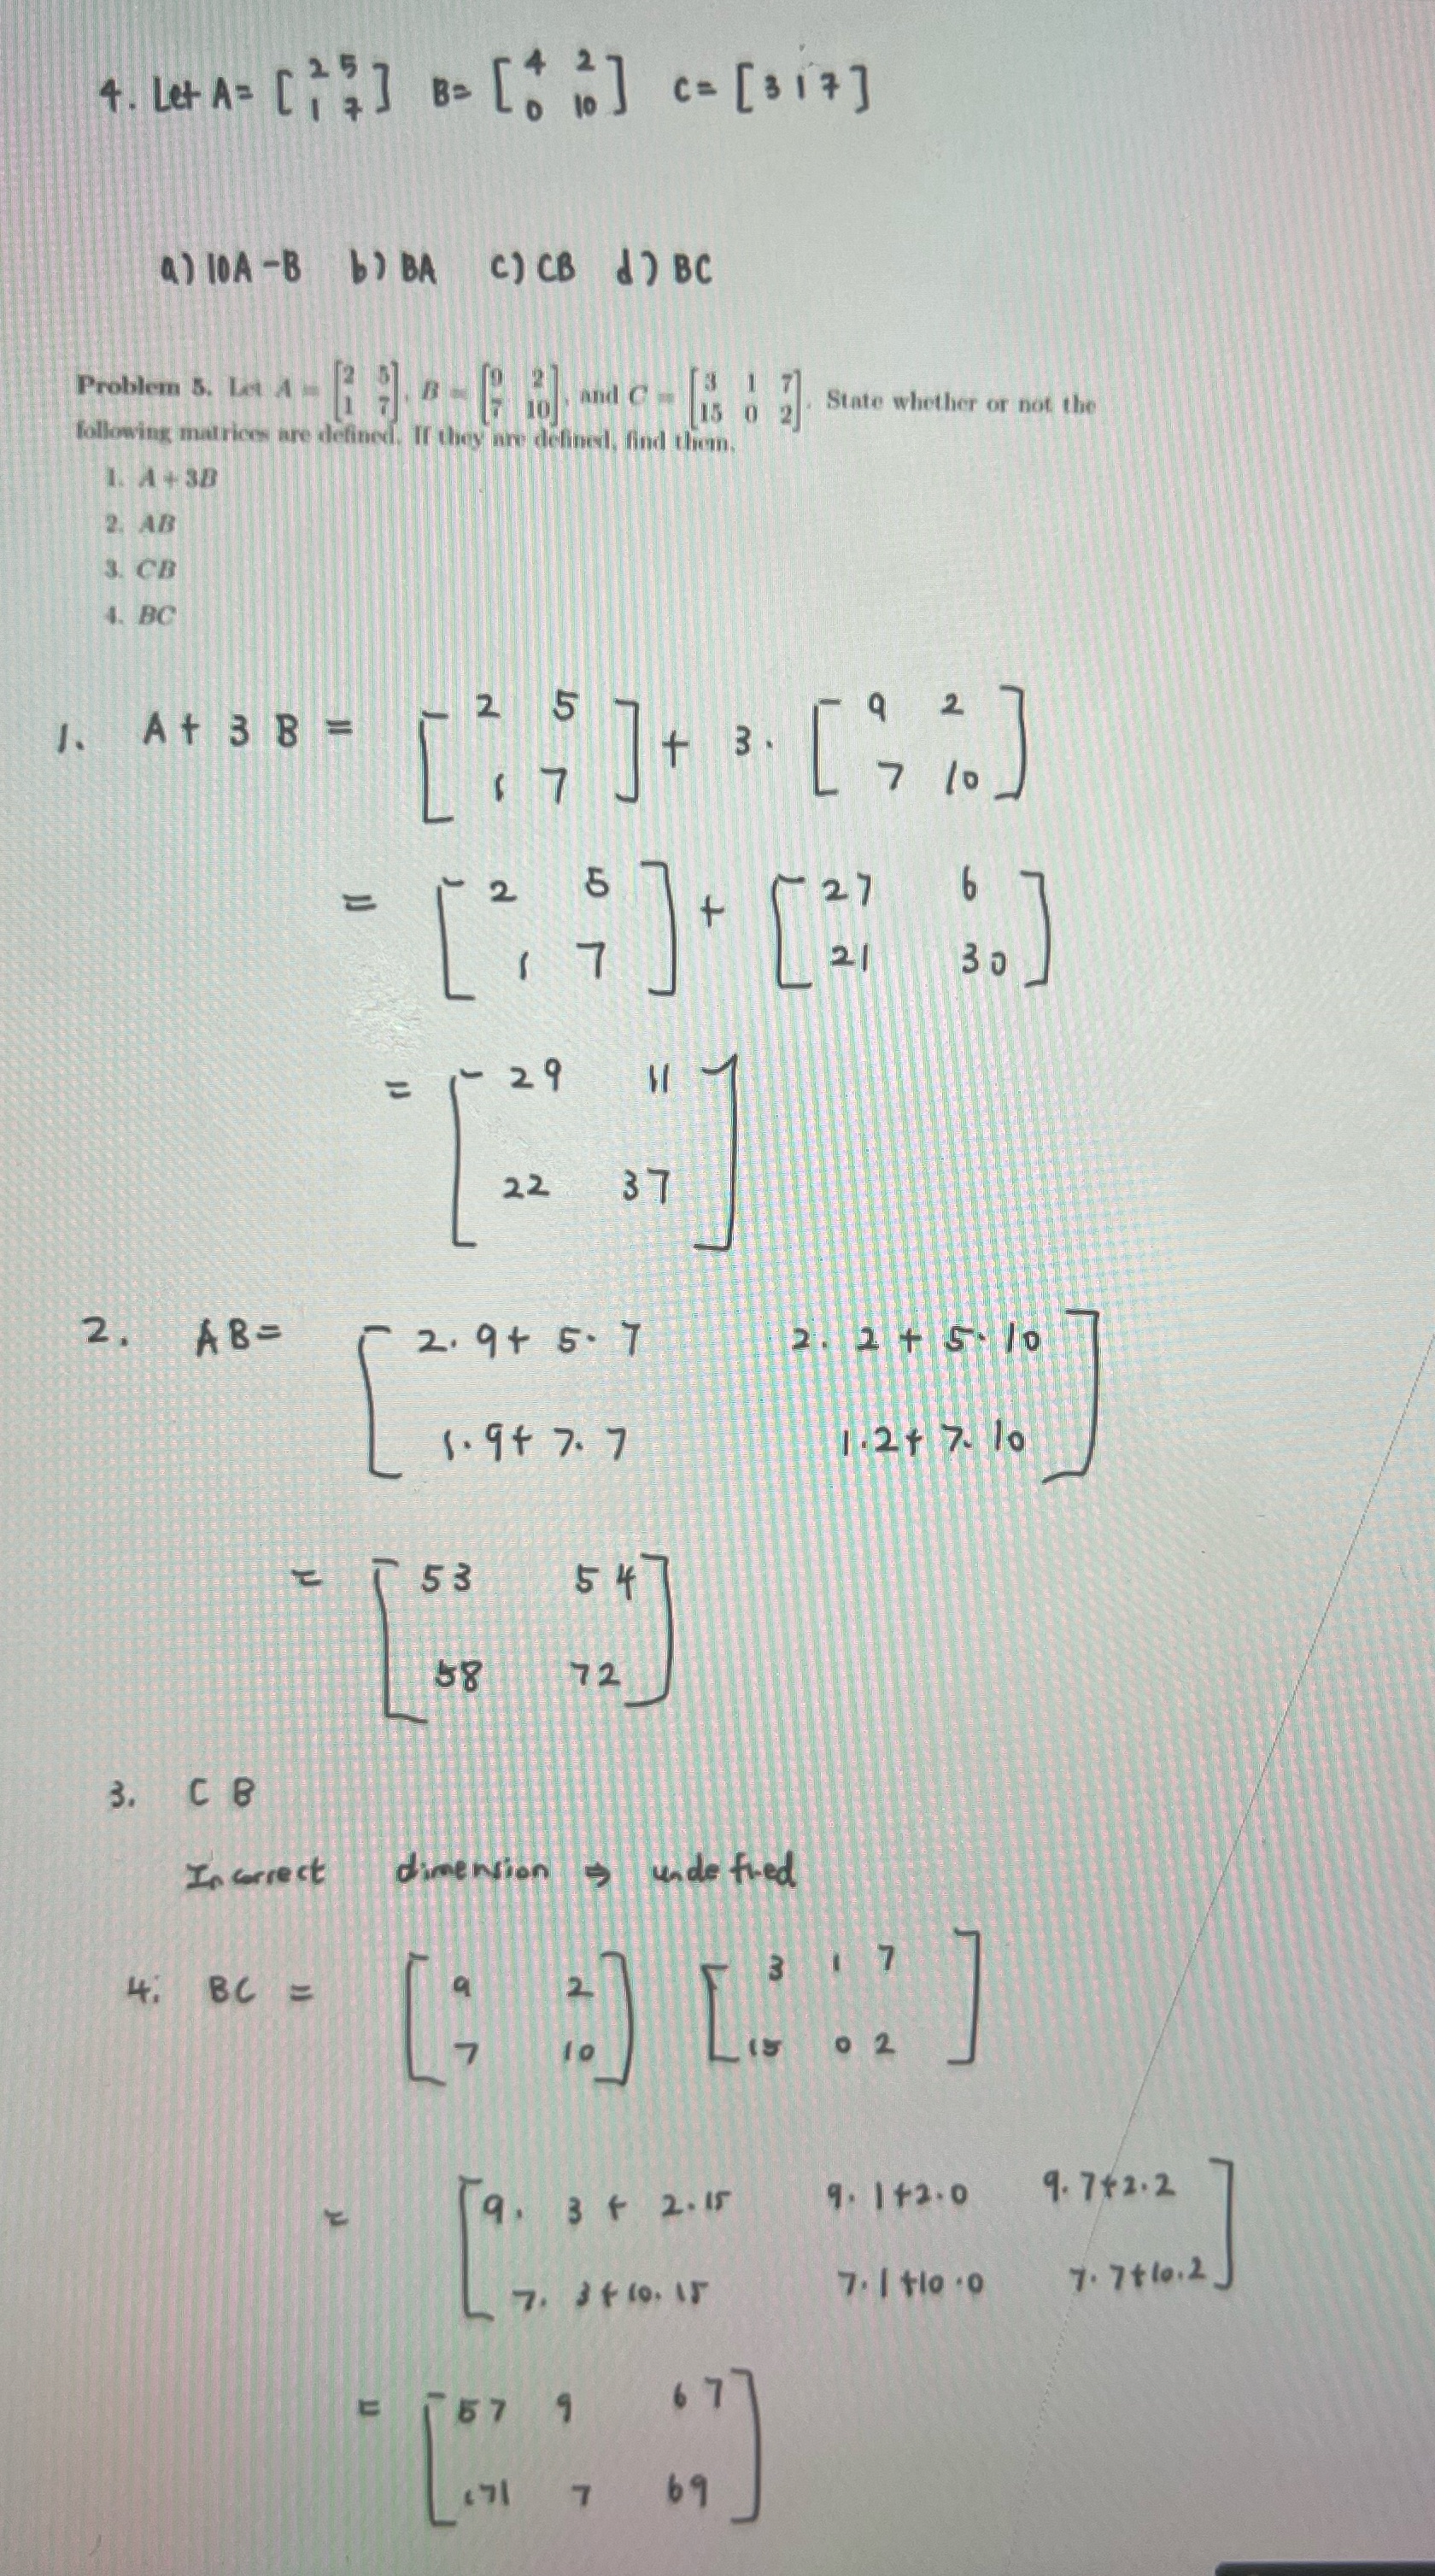 4. Let A = [ 2 5 ] B = [ 4 2 ] C = [ 3 1 7 ]
1 7 0 10
a) 10A - B b) BA c) CB d) BC
Problem 5. Let A = [2 5; 1 7], B = [9 2; 7 10], and C = [3 1 7; 15 0 2]. State whether or not the
following matrices are defined. If they are defined, find them.
1. A + 3B
2. AB
3. CB
4. BC
1. A + 3 B = [ 2 5 ] + 3 · [ 9 2 ]
1 7 7 10
= [ 2 5 ] + [ 27 6 ]
1 7 21 30
= [ 29 11 ]
22 37
2. AB = [ 2 · 9 + 5 · 7 2 · 2 + 5 · 10 ]
1 · 9 + 7 · 7 1 · 2 + 7 · 10
= [ 53 54 ]
58 72
3. C B
Incorrect dimension ⇒ undefined
4. BC = [ 9 2 ] [ 3 1 7 ]
7 10 15 0 2
= [ 9 · 3 + 2 · 15 9 · 1 + 2 · 0 9 · 7 + 2 · 2 ]
7 · 3 + 10 · 15 7 · 1 + 10 · 0 7 · 7 + 10 · 2
= [ 57 9 67 ]
171 7 69